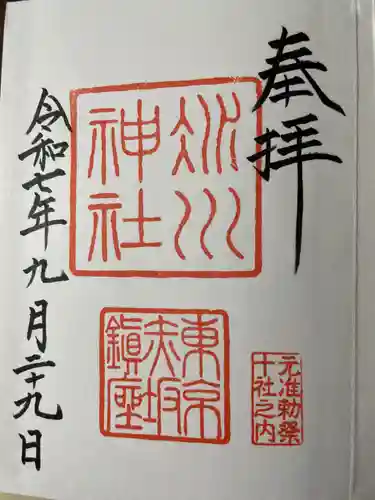 奉拝
氷川
神社
東京
赤坂
鎮座
元准勅祭
十社之内
令和七年九月二十九日